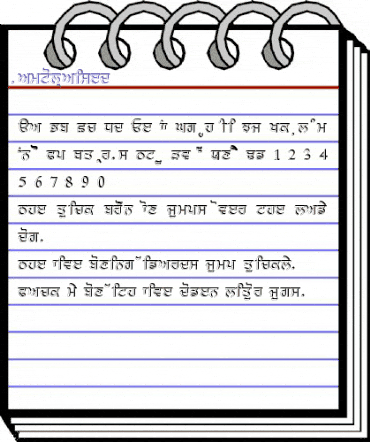 .ਅਮਟੋਲ੍ਅਸਿਵਦ
ੳਅ ਡਬ ਛਚ ਧਦ ਓੲ ਾਂ ਘਗ ੍ਹ ੀ ਿ ਝਜ ਖਕ ਲ ੰਮ
ਂਨ ੌੋ ਫਪ ਥਤ ੍ਰ.ਸ ਠਟ ੂੁ ੜਵ ੱ ਯਣੈੇ ਢਡ 1 2 3 4
5 6 7 8 9 0
ਠਹੲ ਤੁਚਿਕ ਬਰੌਨ ੋਣ ਜੁਮਪਸ ੋਵੲਰ ਟਹੲ ਲਅਡੇ
ਦੋਗ.
ਠਹੲ ਾਵਿੲ ਬੋਣਨਿਗ ੱਡਿਅਰਦਸ ਜੁਮਪ ਤੁਚਿਕਲੇ.
ਫਅਚਕ ਮੇ ਬੋਣ ੱਟਿਹ ਾਵਿੲ ਦੋਡੲਨ ਲਤਿੁੋਰ ਜੁਗਸ.